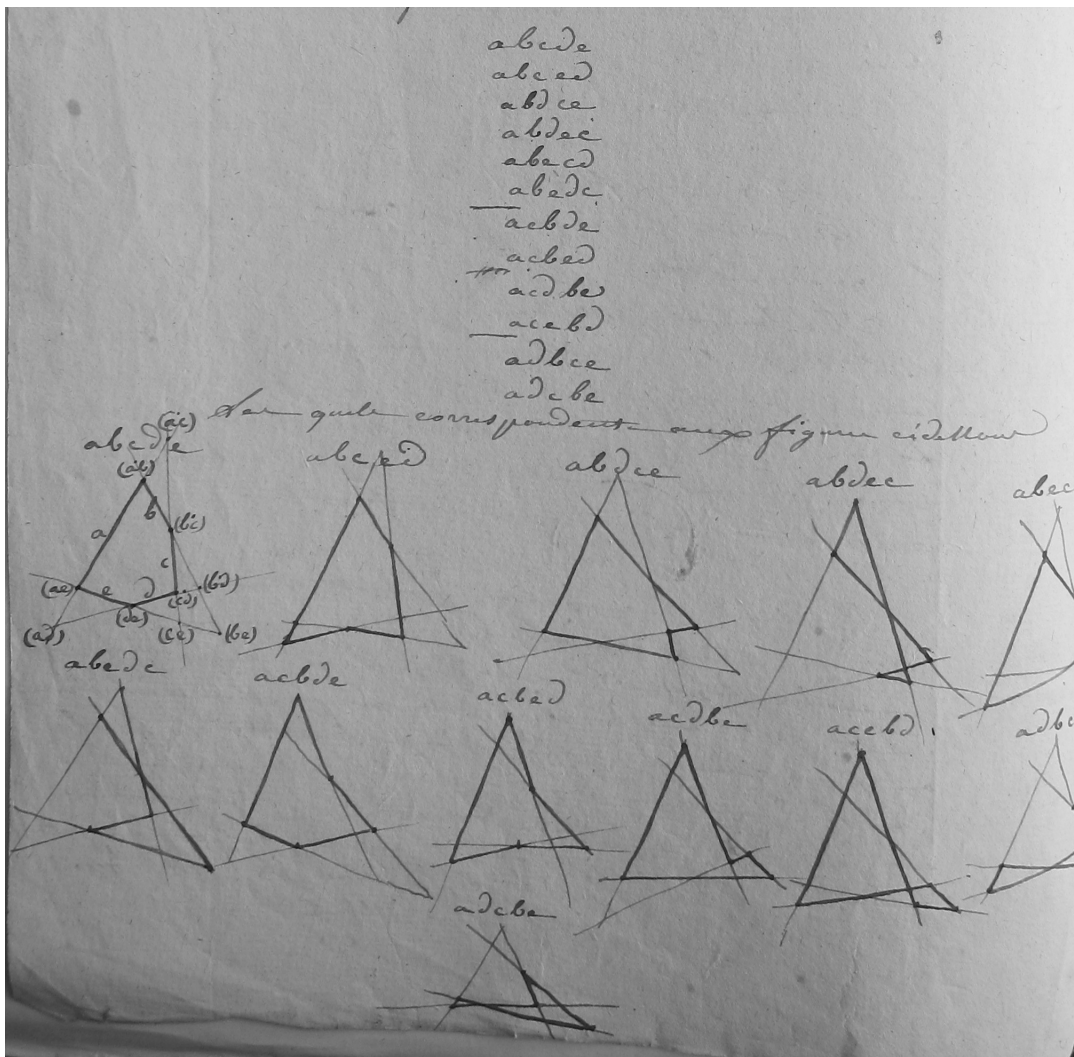 abcde
abced
abdce
abdec
abecd
abedc
acbde
acbed
acdbe
acebd
adbce
adcbe
correspondent aux figures cidessous
(ac)
abcde
(ab)
a
b
(bc)
c
(ae)
e
d
(bd)
(cd)
(de)
(ad)
(ce)
(be)
abced
abdce
abdec
abec
abedc
acbde
acbed
acdbe
acebd
adbc
adcbe